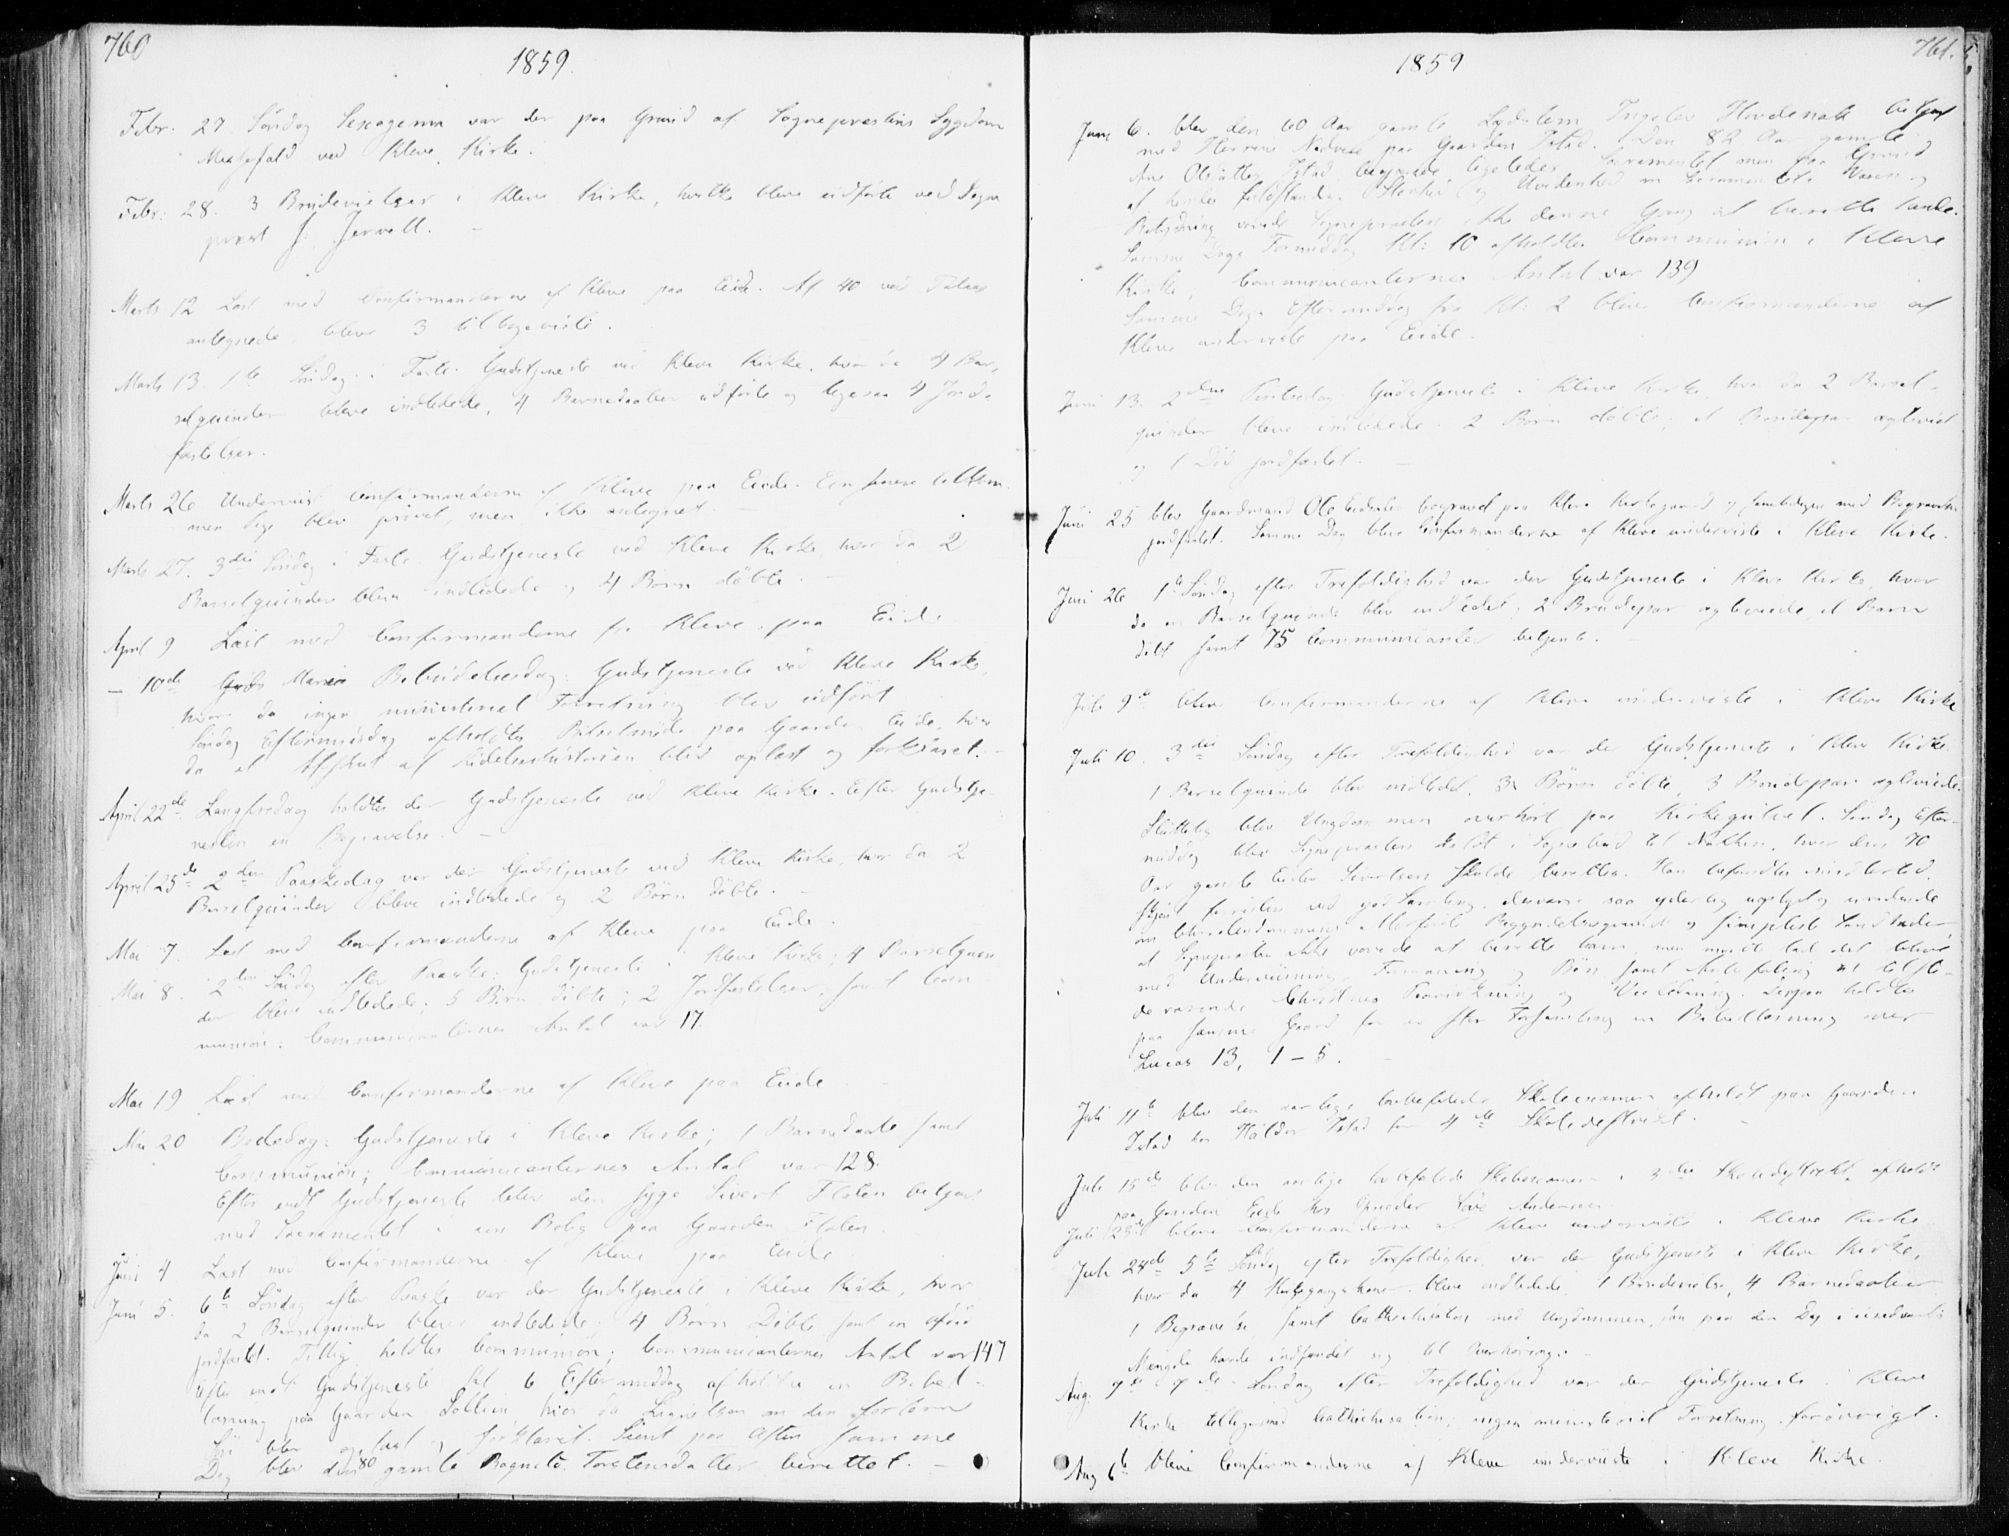 760
1859.
Febr. 27. Søndag Sexagesima var der paa Grund af Sognepræstens Sygdom
Messefald ved Kleve Kirke.
Febr: 28. 3 Brudevielser i Kleve Kirke, hvilke bleve udførte ved Sogne
præst J. Jervell.
Marts 12 Læst med Confirmanderne af Kleve paa Eide. Af 40
antegnede, bleve 3 tilbageviste.
Marts 13. 1te Søndag i Faste. Gudstjeneste ved Kleve Kirke, hvor da 4 Bar-
selquinder bleve indledede, 4 Barnedaaber udførte og ligesaa 4 Jords-
fæstelser.
Marts 26 Undervist Confirmanderne af Kleve paa Eide. En
men Pige blev prøvet, men ikke antegnet.
Marts 27. 3die Søndag i Faste. Gudstjeneste ved Kleve Kirke, hvor da 2
Barselquinder bleve indledede og 4 Børn døbte.
April 9 Læst med Confirmanderne fra Kleve paa Eide
- 10de Mariæ Bebudelsesdag: Gudstjeneste ved Kleve Kirke,
hvor da ingen ministeriel Forretning blev udført
Søndag Eftermiddag afholdtes Bibelmøde paa Gaarden Eide, hvor
da et Afsnit af Lidelseshistorien blev oplæst og forklaret. -
April 22de Langfredag holdtes der Gudstjeneste ved Kleve Kirke. Efter Gudstje-
nesten en Begravelse. -
April 25de 2den Paaskedag var der Gudstjeneste ved Kleve Kirke, hvor da 2
Barselquinder bleve indledede og 2 Børn døbte. -
Mai 7. Læst med Confirmanderne af Kleve paa Eide.
Mai 8. 2den Søndag efter Paaske: Gudstjeneste i Kleve Kirke; 4 Barselquin
der bleve indledede; 5 Børn døbte; 2 Jordfæstelser, samt Com
munion: Communicanternes Antal var 17.
Mai 19 Læst med Confirmanderne af Kleve paa Eide
Mai 20 Bededag: Gudstjeneste i Kleve Kirke; 1 Barnedaab samt
Communion; Communicanternes Antal var 128.
Efter endt Gudstjeneste blev den syge Sivert Flaten betjent
med Sacramentet i sin Bolig paa Gaarden Flaten.
Juni 4 Læst med Confirmanderne af Kleve paa Eide
Juni 5. 6te Søndag efter Paaske var der Gudstjeneste i Kleve Kirke, hvor
da 2 Barselquinder bleve indledede; 4 Børn døbte samt en Død
jordfæstet. Tillig holdtes Communion; Communicanternes Antal var 147
Efter endt Gudstjeneste Kl 6 Eftermiddag afholdtes en Bibel-
læsning paa Gaarden hvor da Lignelsen om den fortabte
Søn blev oplæst og forklaret. Sient paa Aften samme
Dag blev den 80 gamle Torstensdatter berettet. -
761.
1859
Juni 6. blev den 60 Aar gamle Ingelev Hovdenak betjent
med Herrens Nadvere paa Gaarden Istad. Den 82 Aar gamle
Ane Olsdatter Istad begjærede ligeledes Sacramentet men paa Grund
af hendes Uvidenhed om Sacramentets Væsen og
Betydning vovede Sognepræsten ikke denne Gang at berette hende.
Samme Dags Formiddag Kl: 10 afholdtes Communion i Kleve
Kirke, Communicanternes Antal var 139
Samme Dags Eftermiddag fra Kl: 2 bleve Confirmanderne af
Kleve underviste paa Eide.
Juni 13. 2den Pintsedag Gudstjeneste i Kleve Kirke, hvor da 2 Barsel-
quinder bleve indledede. 2 Børn døbte; et Brudepar ægteviet
og 1 Død jordfæstet. -
Juni 25 blev Gaardmand Ole begravet paa Kleve Kirkegaard og samtidigen med Begravelsen
jordfæstet. Samme Dag bleve Confirmanderne af Kleve underviste i Kleve Kirke.
Juni 26 1te Søndag efter Trefoldighed var der Gudstjeneste i Kleve Kirke, hvor
da en Barselquinde blev indledet; 2 Brudepar ægteviede, et Barn
døbt samt 75 Communicanter betjente. -
Juli 9de bleve Confirmanderne af Kleve underviste i Kleve Kirke
Juli 10. 3die Søndag efter Trefoldighed var der Gudstjeneste i Kleve Kirke.
1 Barselquinde blev indledet. 3 Børn døbte, 3 Brudepar ægteviede.
Sluttelig blev Ungdommen overhørt paa Kirkegulvet. Søndag Efter-
middag blev Sognepræsten kaldt i Sognebud til, hvor den 70
Aar gamle Sivertsen skulde berettes. Han befandtes imidlertid,
skjønt ved god Samling, desværre saa yderlig uoplyst og uvidende
om Christendommens Begyndelsesgrunde og simpleste Sandheder,
at Sognepræsten ikke vovede at berette ham, men maatte lad det blive
med Underviisning, Formaning og Bøn samt Anbefaling til
deværende Christnes Paavirkning og Veiledning. Derpaa holdtes
paa samme Gaard for en stor Forsamling en Bibellæsning over
Lucas 13, 1-5. -
Juli 11te blev den aarlige lovbefalede Skoleexamen afholdt paa Gaarden
Istad hos Haldor Istad for 4de Skoledistrikt.
Juli 15de blev den aarlige lovbefalede Skoleexamen i 3die Skoledistrikt afholdt
paa Gaarden Eide hos Andersen.
Juli 23de bleve Confirmanderne af Kleve underviste i Kleve Kirke
Juli 24de 5te Søndag efter Trefoldighed var der Gudstjeneste i Kleve Kirke,
hvor da 4 Kirkegangskoner bleve indledede, 1 Brudevielse, 4 Barnedaaber
1 Begravelse samt Cathechisation med Ungdommen, som paa den Dag i
Mængde havde indfundet sig til Overhøring. -
Aug. Søndag efter Trefoldighed var der Gudstjeneste i Kleve
Kirke tilligemed Cathichisation; ingen ministeriel Forretning forøvrigt.
Aug 6te bleve Confirmanderne af Kleve underviiste i Kleve Kirke.